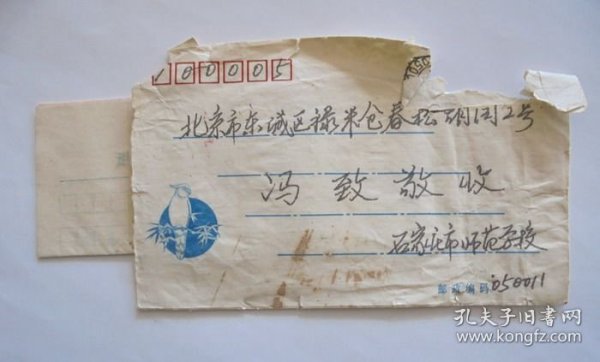 100005
北京市东城区禄米仓春松胡同2号
冯致敬收
石家庄市师范学校
邮政编码 050011
孔夫子旧书网
kongfz.com